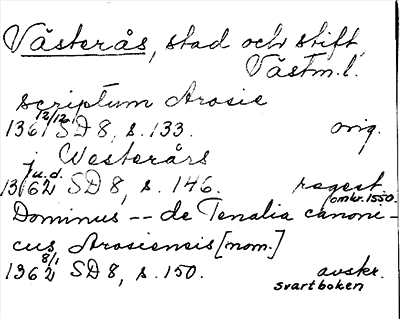 Västerås, stad och stift,
Västm. l.
scriptum Arosie
1361 12/12 SD 8, s. 133. orig.
j Westerårs
1362 u.d. SD 8, s. 146. regest omkr. 1550.
Dominus -- de Tenalia canoni-
cus Arosiensis [nom.]
1362 8/1 SD 8, s. 150. avskr.
svartboken